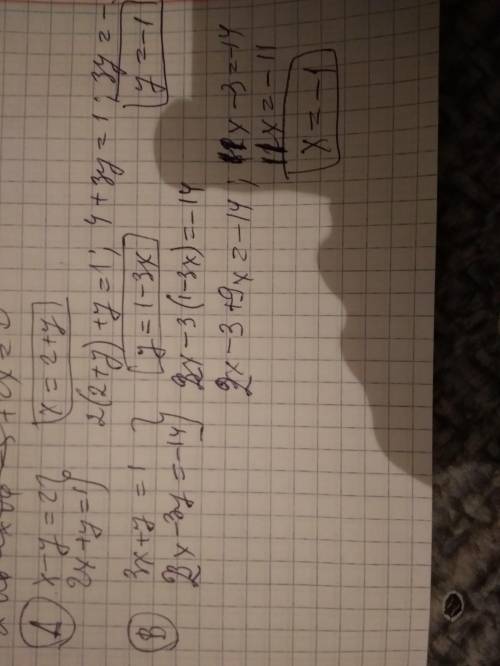 A) x - y = 2 } x = 2 + y
2x + y = 1 } 2(2+y) + y = 1; 4 + 3y = 1; 3y = -
y = -1
B) 3x + y = 1 } y = 1 - 3x
2x - 3y = -14 } 2x - 3(1-3x) = -14
2x - 3 + 9x = -14; 11x - 3 = -14
11x = -11
x = -1